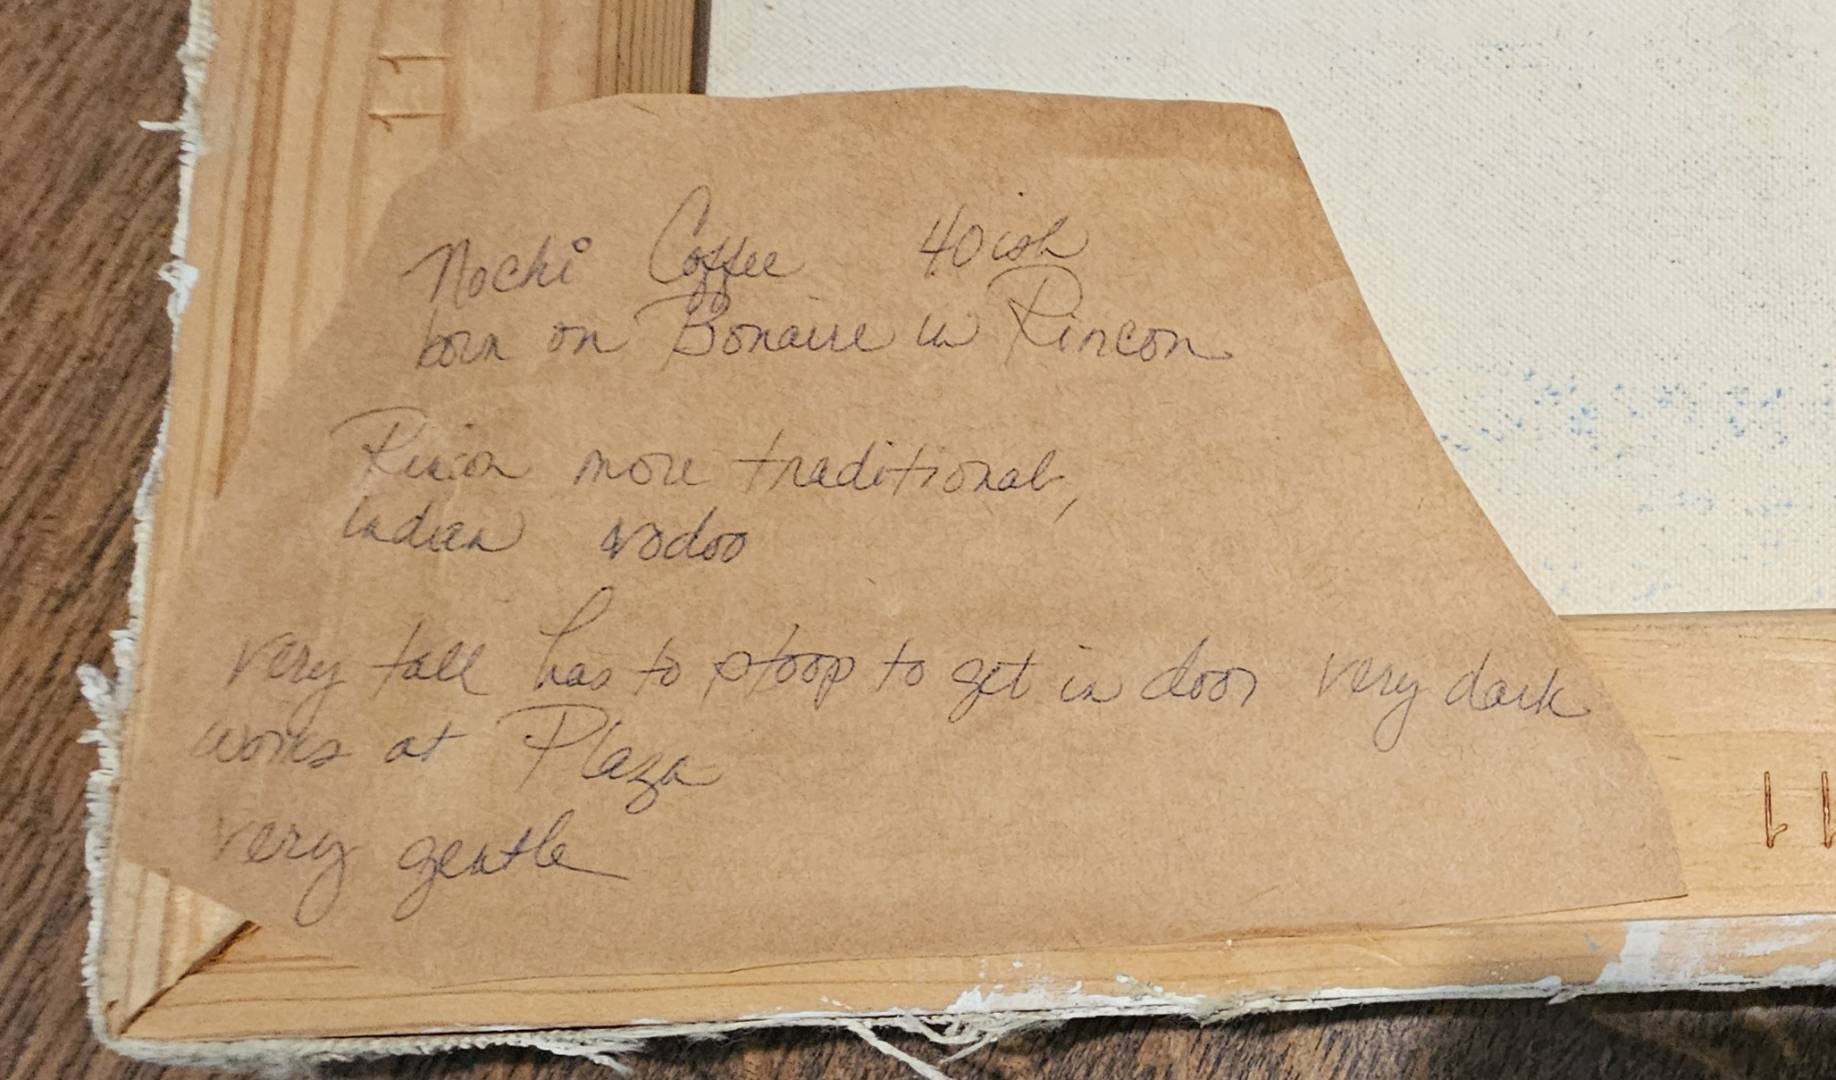 Nochi Coffee 40ish
born on Bonaire in Rincon
Rincon more traditional,
indian vodoo
very tall has to stoop to get in door very dark
works at Plaza
very gentle